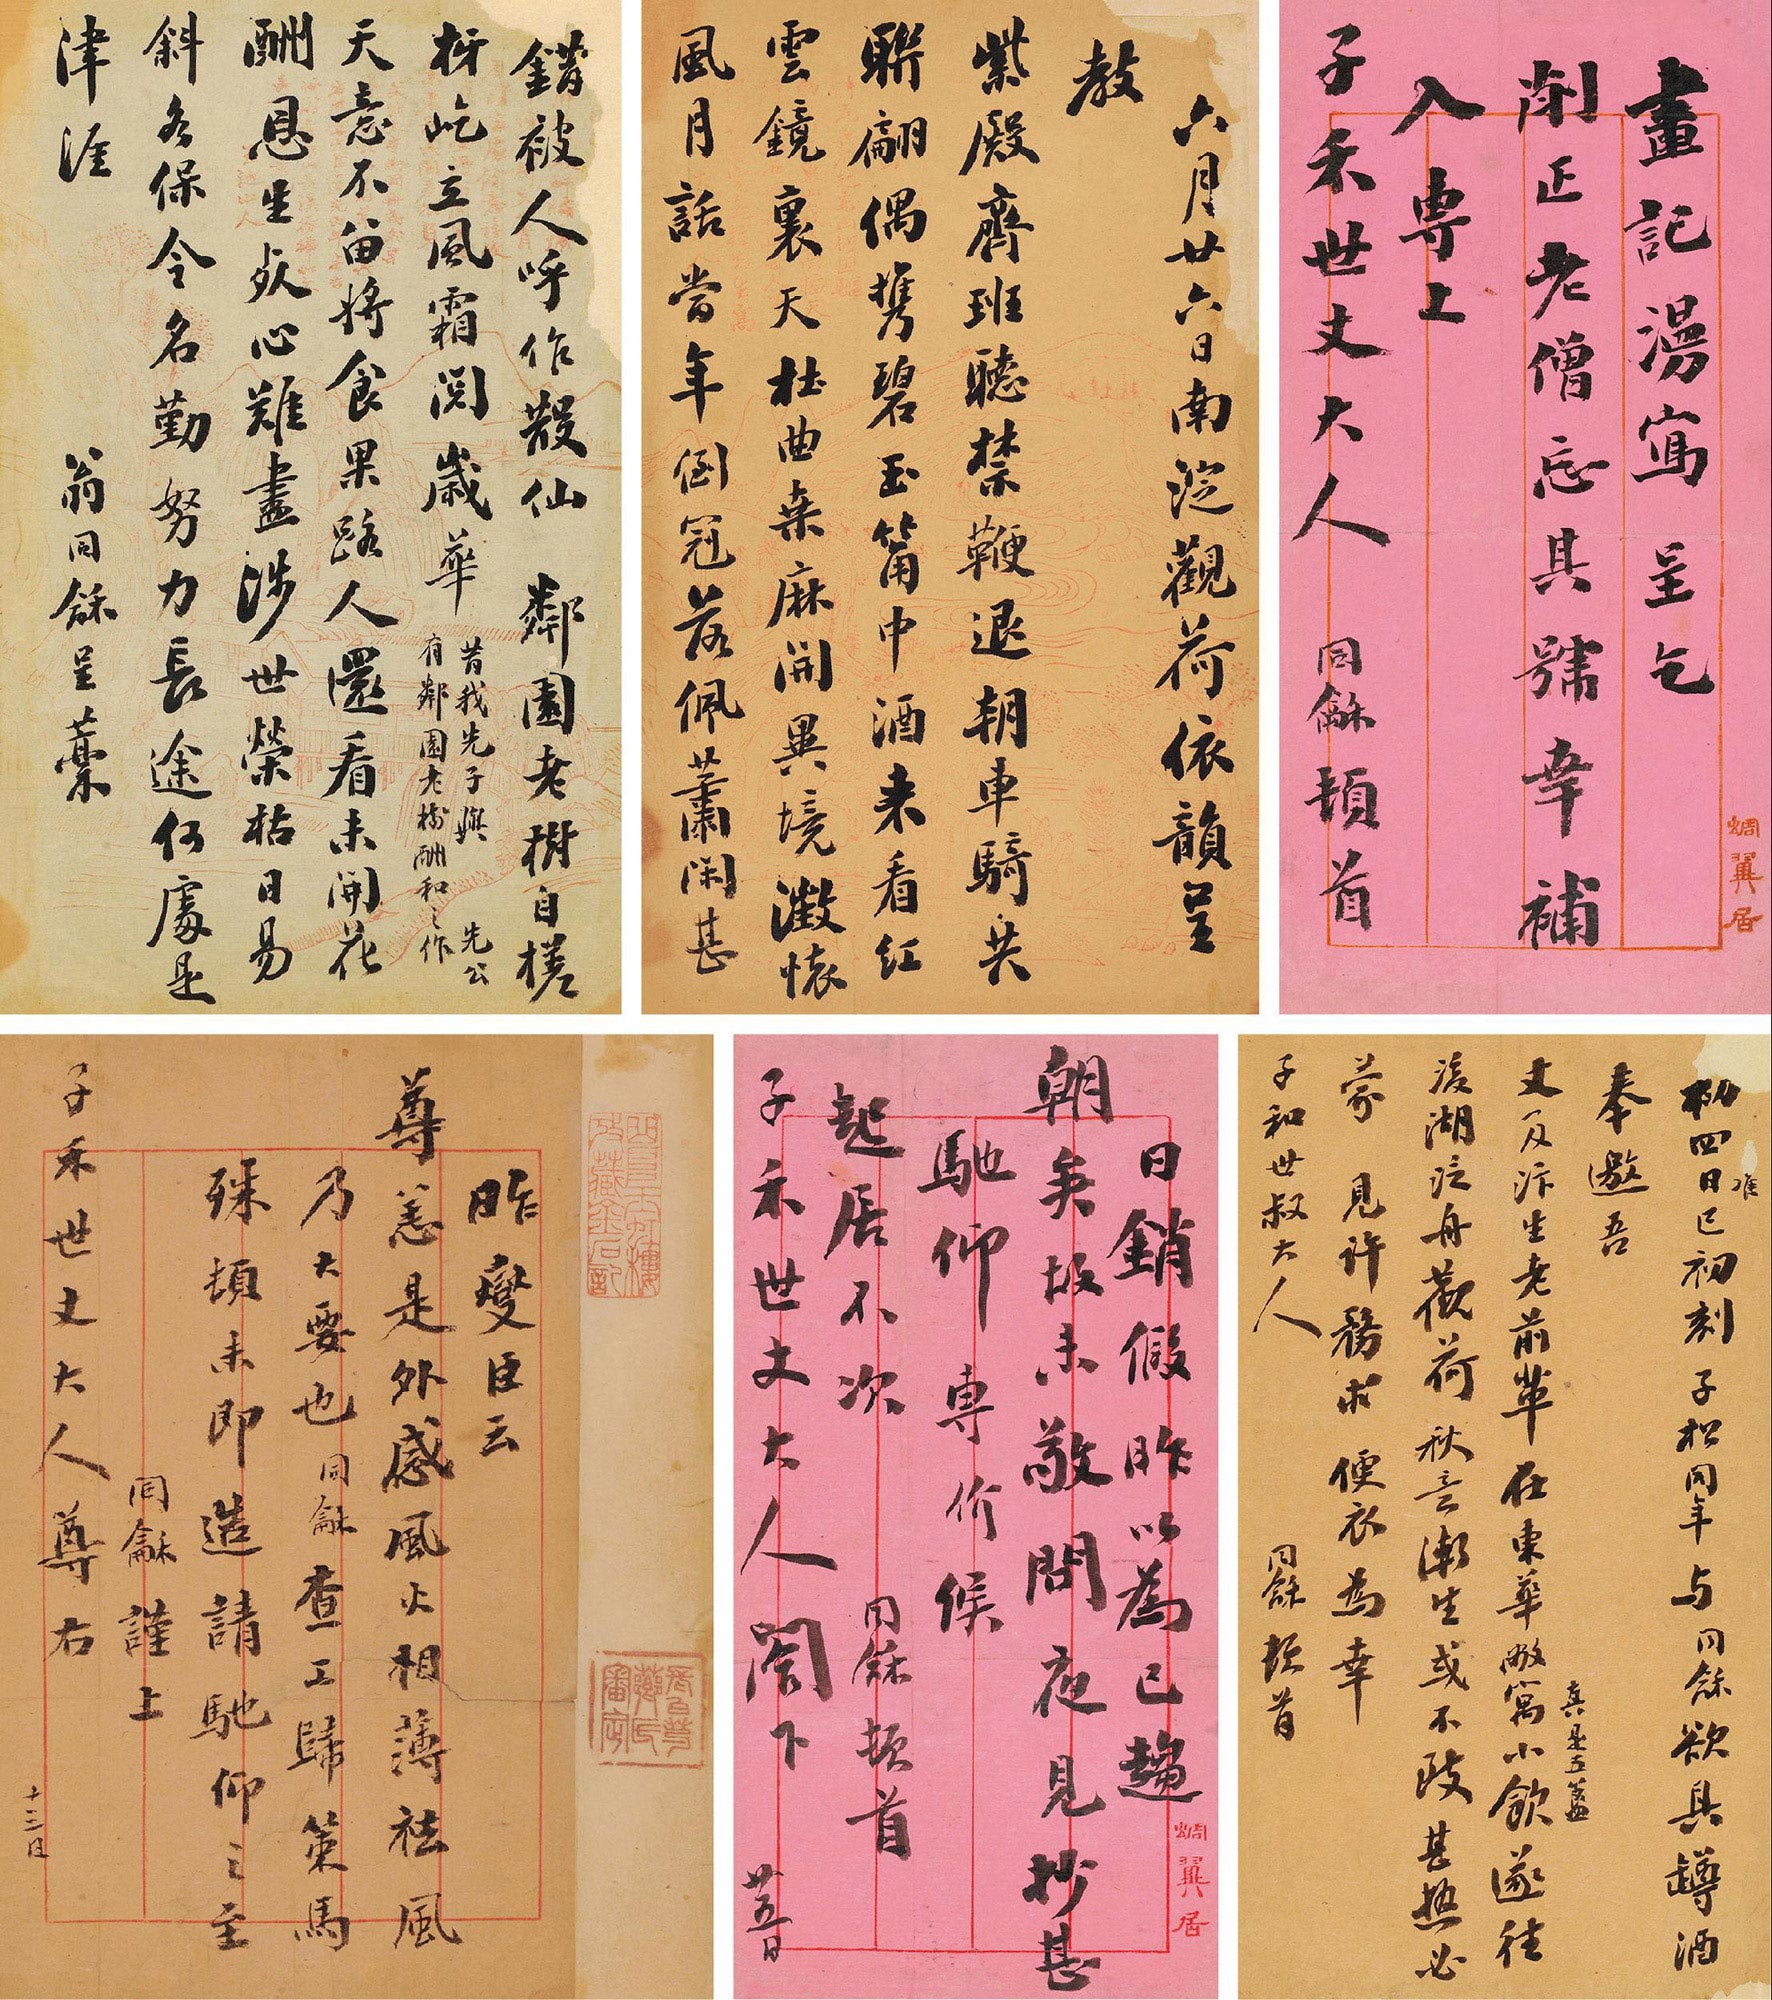 畫記漫寫呈乞
削正老僧忘具號幸補
入專上
子禾世丈大人 同龢頓首
蜩翼居
六月廿六日南淀觀荷依韻呈
教
紫殿齊班聽禁鞭退朝車騎共
聯翩偶攜碧玉筩中酒來看紅
雲鏡裏天杜曲桑麻開異境瀲懷
風月話當年倒冠落佩蕭閑甚
錯被人呼作散仙 鄰園老樹自槎
枒屹立風霜閱歲華
昔我先子與 先公
有鄰園老樹酬和之作
天意不留將食果路人還看未開花
酬恩生死心難盡涉世榮枯日易
斜各保令名勤努力長途何處是
津涯 翁同龢呈藁
初四日巳初刻 子松同年與同龢欲具罇酒
准
奉邀吾
丈及汴生老前輩在東華敝寓小飲遂往
真是五簋
後湖泛舟觀荷秋言漸生或不致甚熱必
蒙 見許務求 便衣為幸
子和世叔大人 同龢頓首
日銷假昨以為已趨
朝矣故未敬問夜見抄甚
馳仰專价候
起居不次 同龢頓首
子禾世丈大人閣下 廿五日
蜩翼居
昨燮臣云
尊恙是外感風火相薄祛風
乃大要也同龢查工歸策馬
殊頓未即造請馳仰之至
同龢謹上
子禾世丈大人尊右 十三日